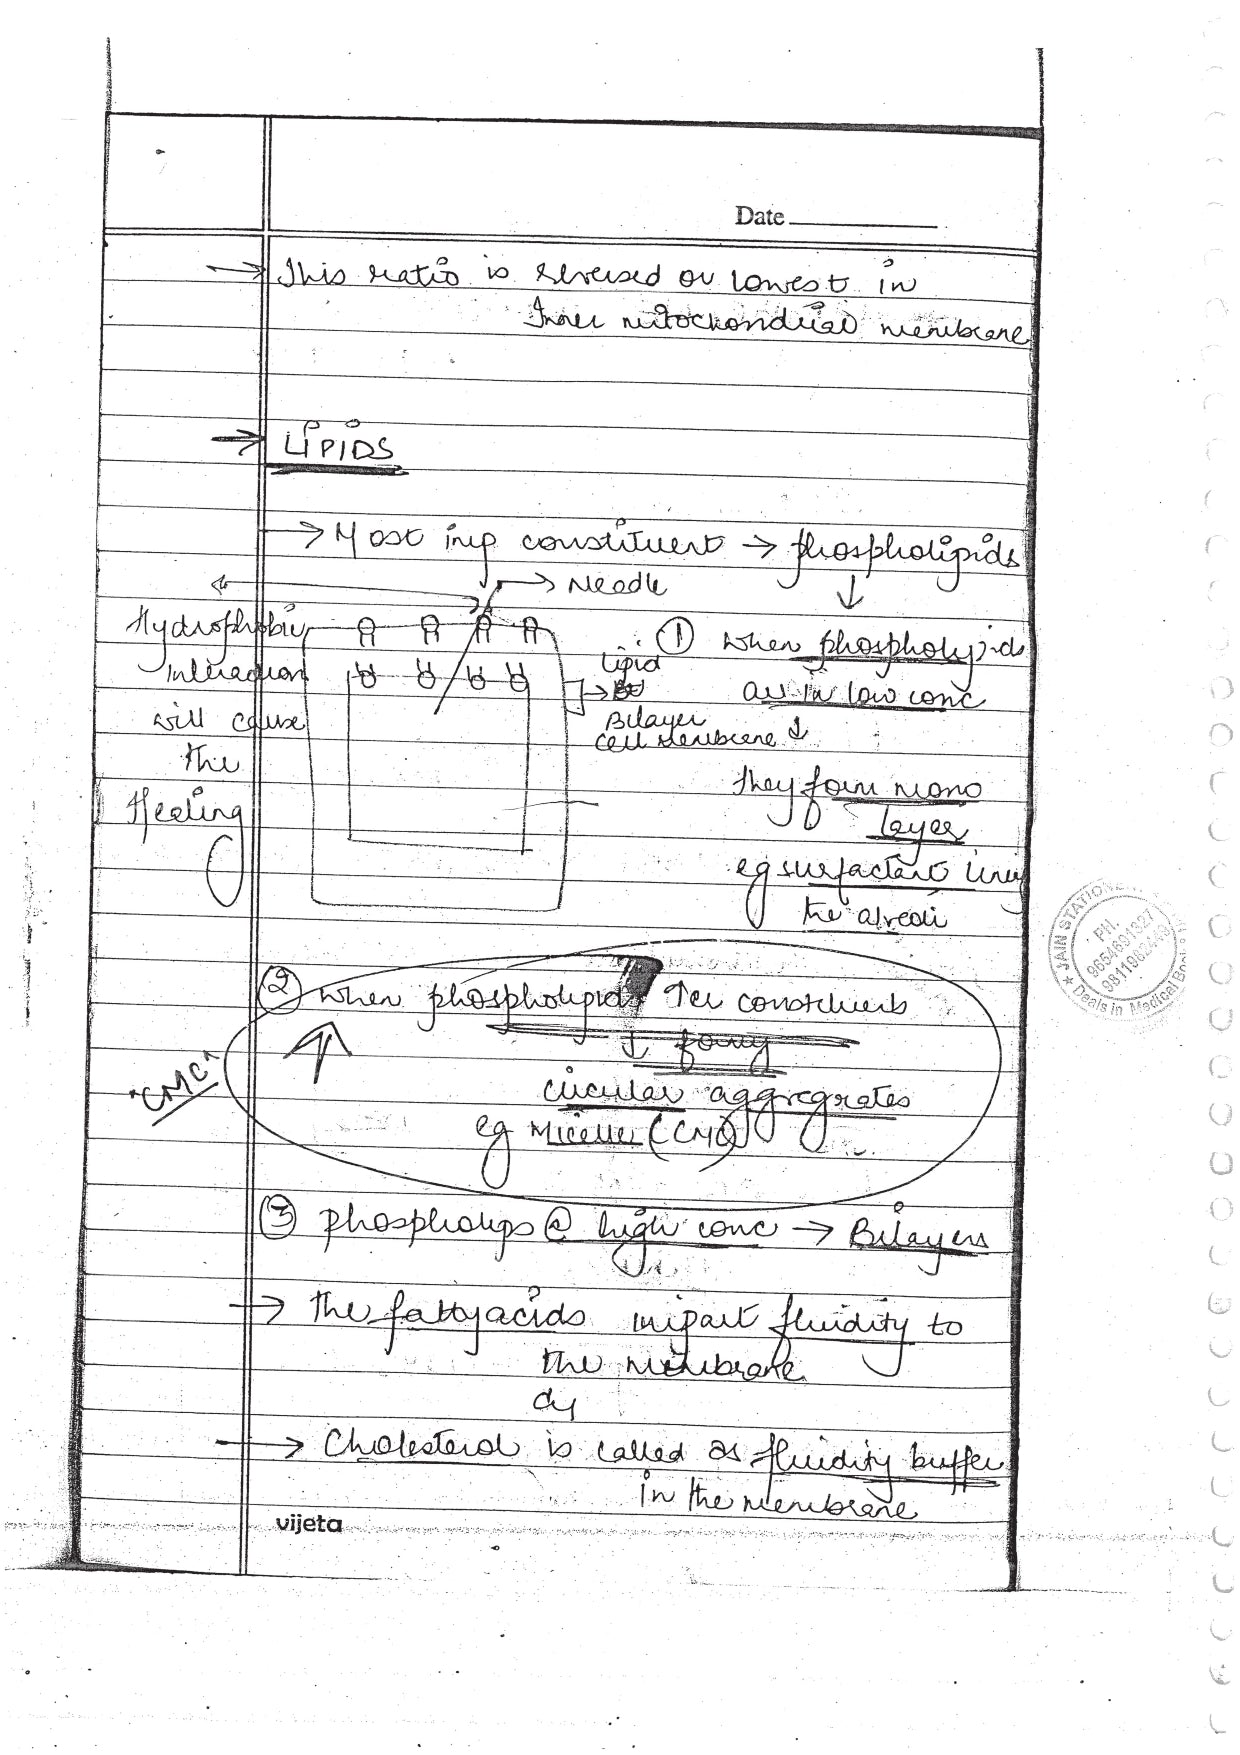 Date
→ This ratio is reversed or lowest in
Inner mitochondrial membrane
→ LIPIDS
→ Most imp constituent → phospholipids
→ Needle
Hydrophobic
Interaction
will cause
the
Healing
Lipid
Bilayer
cell membrane
① when phospholipids
are in low conc
↓
they form mono
layer
eg surfactant lining
the alveoli
② when phospholipids ↑er constituents
↓ formg
circular aggregrates
eg Micelles (CMC)
"CMC"
③ phospholips @ high conc → Bilayers
→ the fattyacids impart fluidity to
the membrane
→ Cholesterol is called as fluidity buffer
in the membrane
vijeta
JAIN STATION
PH.
9654691327
Deals in Medical Books